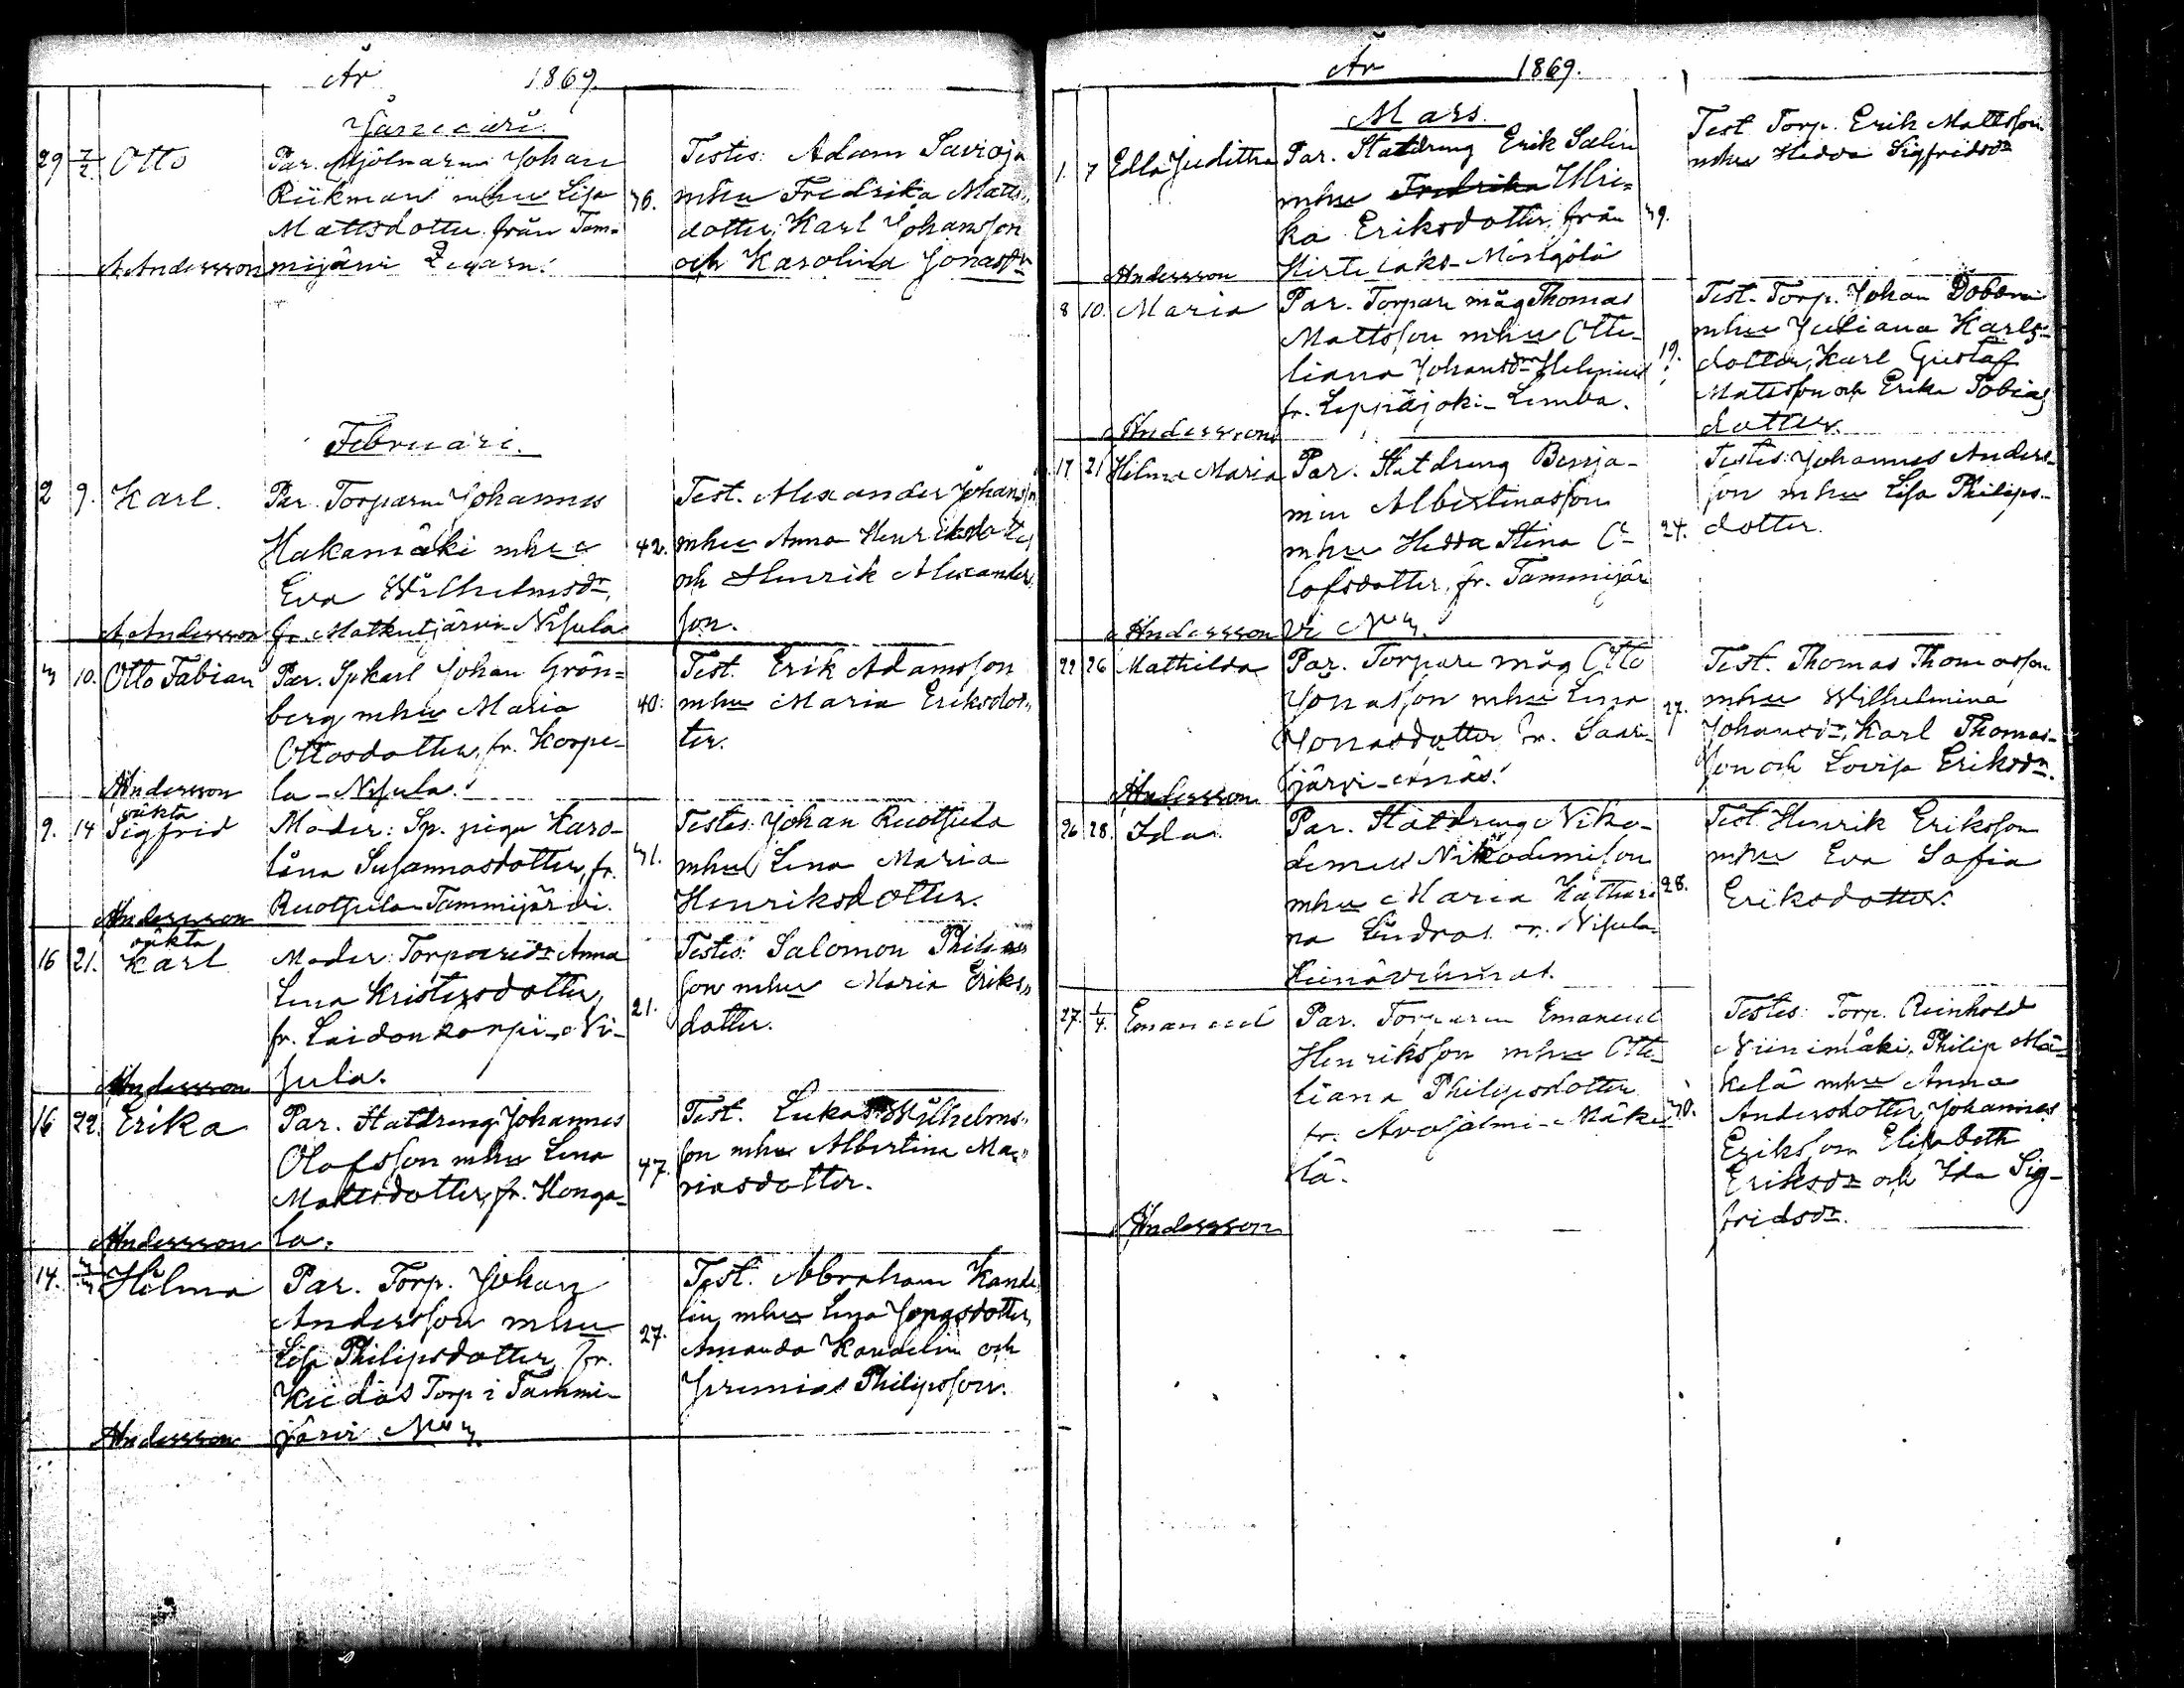 År 1869.
Januari.
29 7/2 Otto Par. Mjölnaren Johan
Riikman mhu Lisa
Mattsdotter från Tam-
mijärvi
A Andersson
36.
Testes: Adam Savioja
mhu Fredrika Matts-
dotter, Karl Johansson
och Karolina Jonasdr
Februari.
2 9. Karl. Par. Torparen Johannes
Hakamäki mhu
Eva Wilhelmsdr,
fr. Matkutjärvi Nisula
A Andersson
42.
Test. Alexander Johansson
mhu Anna Henriksdotter
och Henrik Alexanders-
son.
3 10. Otto Fabian Par. Spkarl Johan Grön-
berg mhu Maria
Ottosdotter, fr. Korpe-
la - Nisula.
Andersson
40.
Test. Erik Adamsson
mhu Maria Eriksdot-
ter.
9. 14 oäkta
Sigfrid Moder: Sp. piga Karo-
lina Susannasdotter, fr.
Ruotsula Tammijärvi.
Andersson
31.
Testes: Johan Ruotsula
mhu Lena Maria
Henriksdotter.
16 21. oäkta
Karl Moder: Torparedr Anna
Lena Kristersdotter,
fr. Laidonkorpi - Ni-
sula.
Andersson
21.
Testes: Salomon Philips-
son mhu Maria Eriks-
dotter.
16 22. Erika Par. Statdreng Johannes
Olofsson mhu Lena
Mattsdotter, fr. Honga-
la.
Andersson
47.
Test. Lukas Wilhelms-
son mhu Albertina Ma-
riasdotter.
14. 3/3 Hilma Par. Torp. Johan
Andersson mhu
Lisa Philipsdotter, fr.
Torp i Tammi-
järvi
Andersson
27.
Test. Abraham Kande-
lin mhu Lena Jonasdotter,
Amanda Kandelin och
Jeremias Philipsson.
År 1869.
Mars.
1. 7 Edla Juditha Par. Statdreng Erik Salin
mhu Fredrika Ulri-
ka Eriksdotter, från
39.
Andersson
Test. Torp. Erik Mattsson
mhu Hedda Sigfridsdr
8 10. Maria Par. Torpare måg Thomas
Mattsson mhu Otte-
liana Johansdr Helenius
fr. Leppäjoki - Limba.
Andersson
19.
Test. Torp. Johan
mhu Juliana Karls-
dotter, Karl Gustaf
Mattsson och Erika Tobias
dotter.
17 21 Hilma Maria Par. Statdreng Benja-
min Albertinasson
mhu Hedda Stina O-
lofsdotter, fr. Tammijär
vi
Andersson
24.
Testes: Johannes Anders-
son mhu Lisa Philips-
dotter.
22 26 Mathilda Par. Torpare måg Otto
Jonasson mhu Lena
Jonasdotter fr. Saari-
järvi
Andersson
27.
Test. Thomas Thomasson
mhu Wilhelmina
Johansdr, Karl Thomas-
son och Lovisa Eriksdr.
26 28. Ida Par. Statdreng Niko-
demus Nikodemisson
mhu Maria Kathari
na Lindros fr. Nisula
28.
Test. Henrik Eriksson
mhu Eva Sofia
Eriksdotter.
27. 1/4. Emanuel Par. Torparen Emanuel
Henriksson mhu Otte-
liana Philipsdotter
fr. Arvasalmi - Mäke
lä.
Andersson
30.
Testes: Torp. Reinhold
Niinimäki, Philip Mä-
kelä mhu Anna
Andersdotter, Johannes
Eriksson Elisabeth
Eriksdr och Ida Sig-
fridsdr.